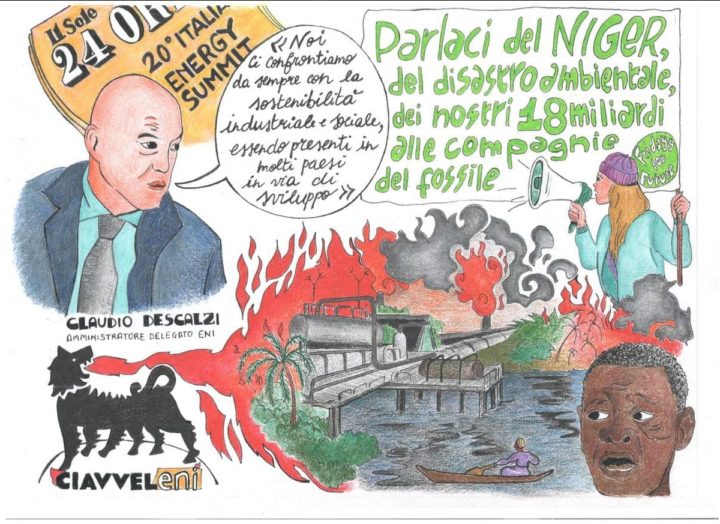 Il Sole
24 OR
20° ITALIA
ENERGY
SUMMIT
«Noi
ci confrontiamo
da sempre con la
sostenibilità
industriale e sociale,
essendo presenti in
molti paesi
in via di
sviluppo»
Parlaci del NIGER,
del disastro ambientale,
dei nostri 18 miliardi
alle compagnie
del fossile
Fridays
for
Future
CLAUDIO DESCALZI
AMMINISTRATORE DELEGATO ENI
CIAVVELeni